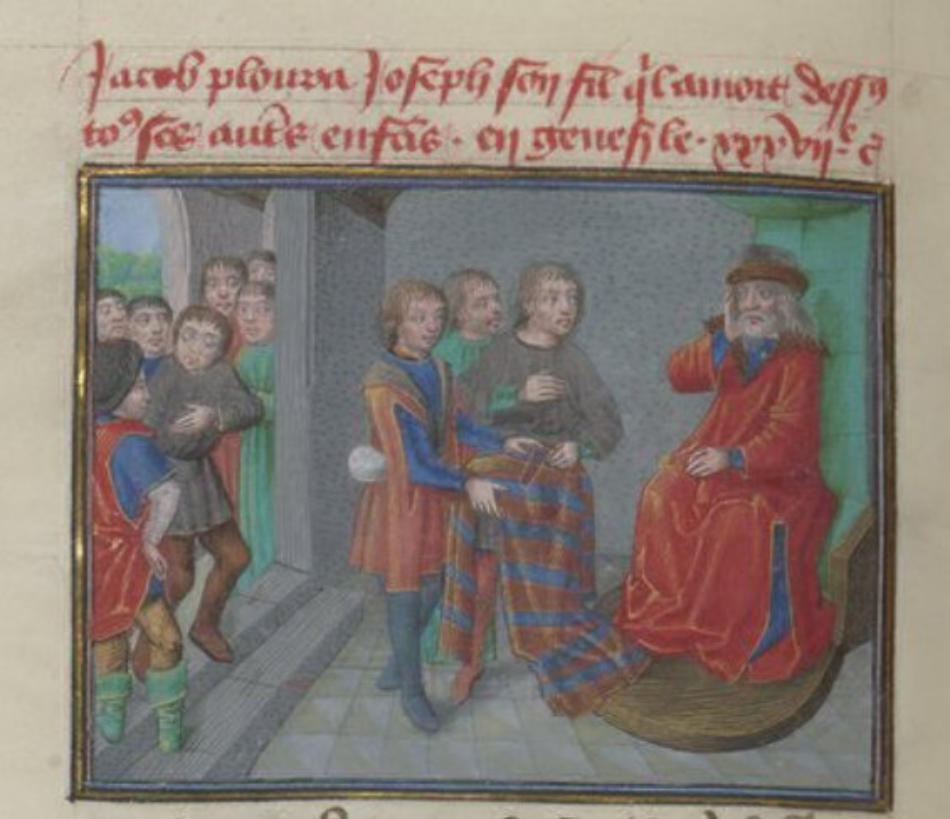 Jacob ploura Joseph son fil q̓l amoit dessꝰ
toꝰ ses aut̃s enfãs · en genesi le · xxxvij · c̃